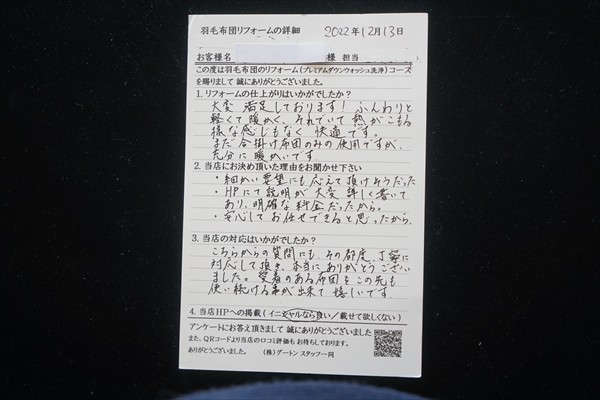 羽毛布団リフォームの詳細 2022年12月13日
お客様名 様 担当
この度は羽毛布団のリフォーム(プレミアムダウンウォッシュ洗浄)コース
を賜りまして誠にありがとうございました。
1. リフォームの仕上がりはいかがでしたか?
大変 満足しております! ふんわりと
軽くて暖かく、それでいて熱がこもる
様な感じもなく 快適です。
まだ合掛け布団のみの使用ですが、
充分に暖かいです。
2. 当店にお決め頂いた理由をお聞かせ下さい
・細かい要望にも応えて頂けそうだった
・HPにて説明が大変詳しく書いて
あり、明確な料金だったから。
・安心してお任せできると思ったから。
3. 当店の対応はいかがでしたか?
こちらからの質問にも、その都度、丁寧に
対応して頂き、本当にありがとうござい
ました。愛着のある布団をこの先も
使い続ける事が出来て 嬉しいです。
4. 当店HPへの掲載(イニシャルなら良い/載せて欲しくない)
アンケートにお答え頂きまして 誠にありがとうございました
また、QRコードより当店の口コミ評価も お待ちしております。
ありがとうございました。 (株)ダートン スタッフ一同